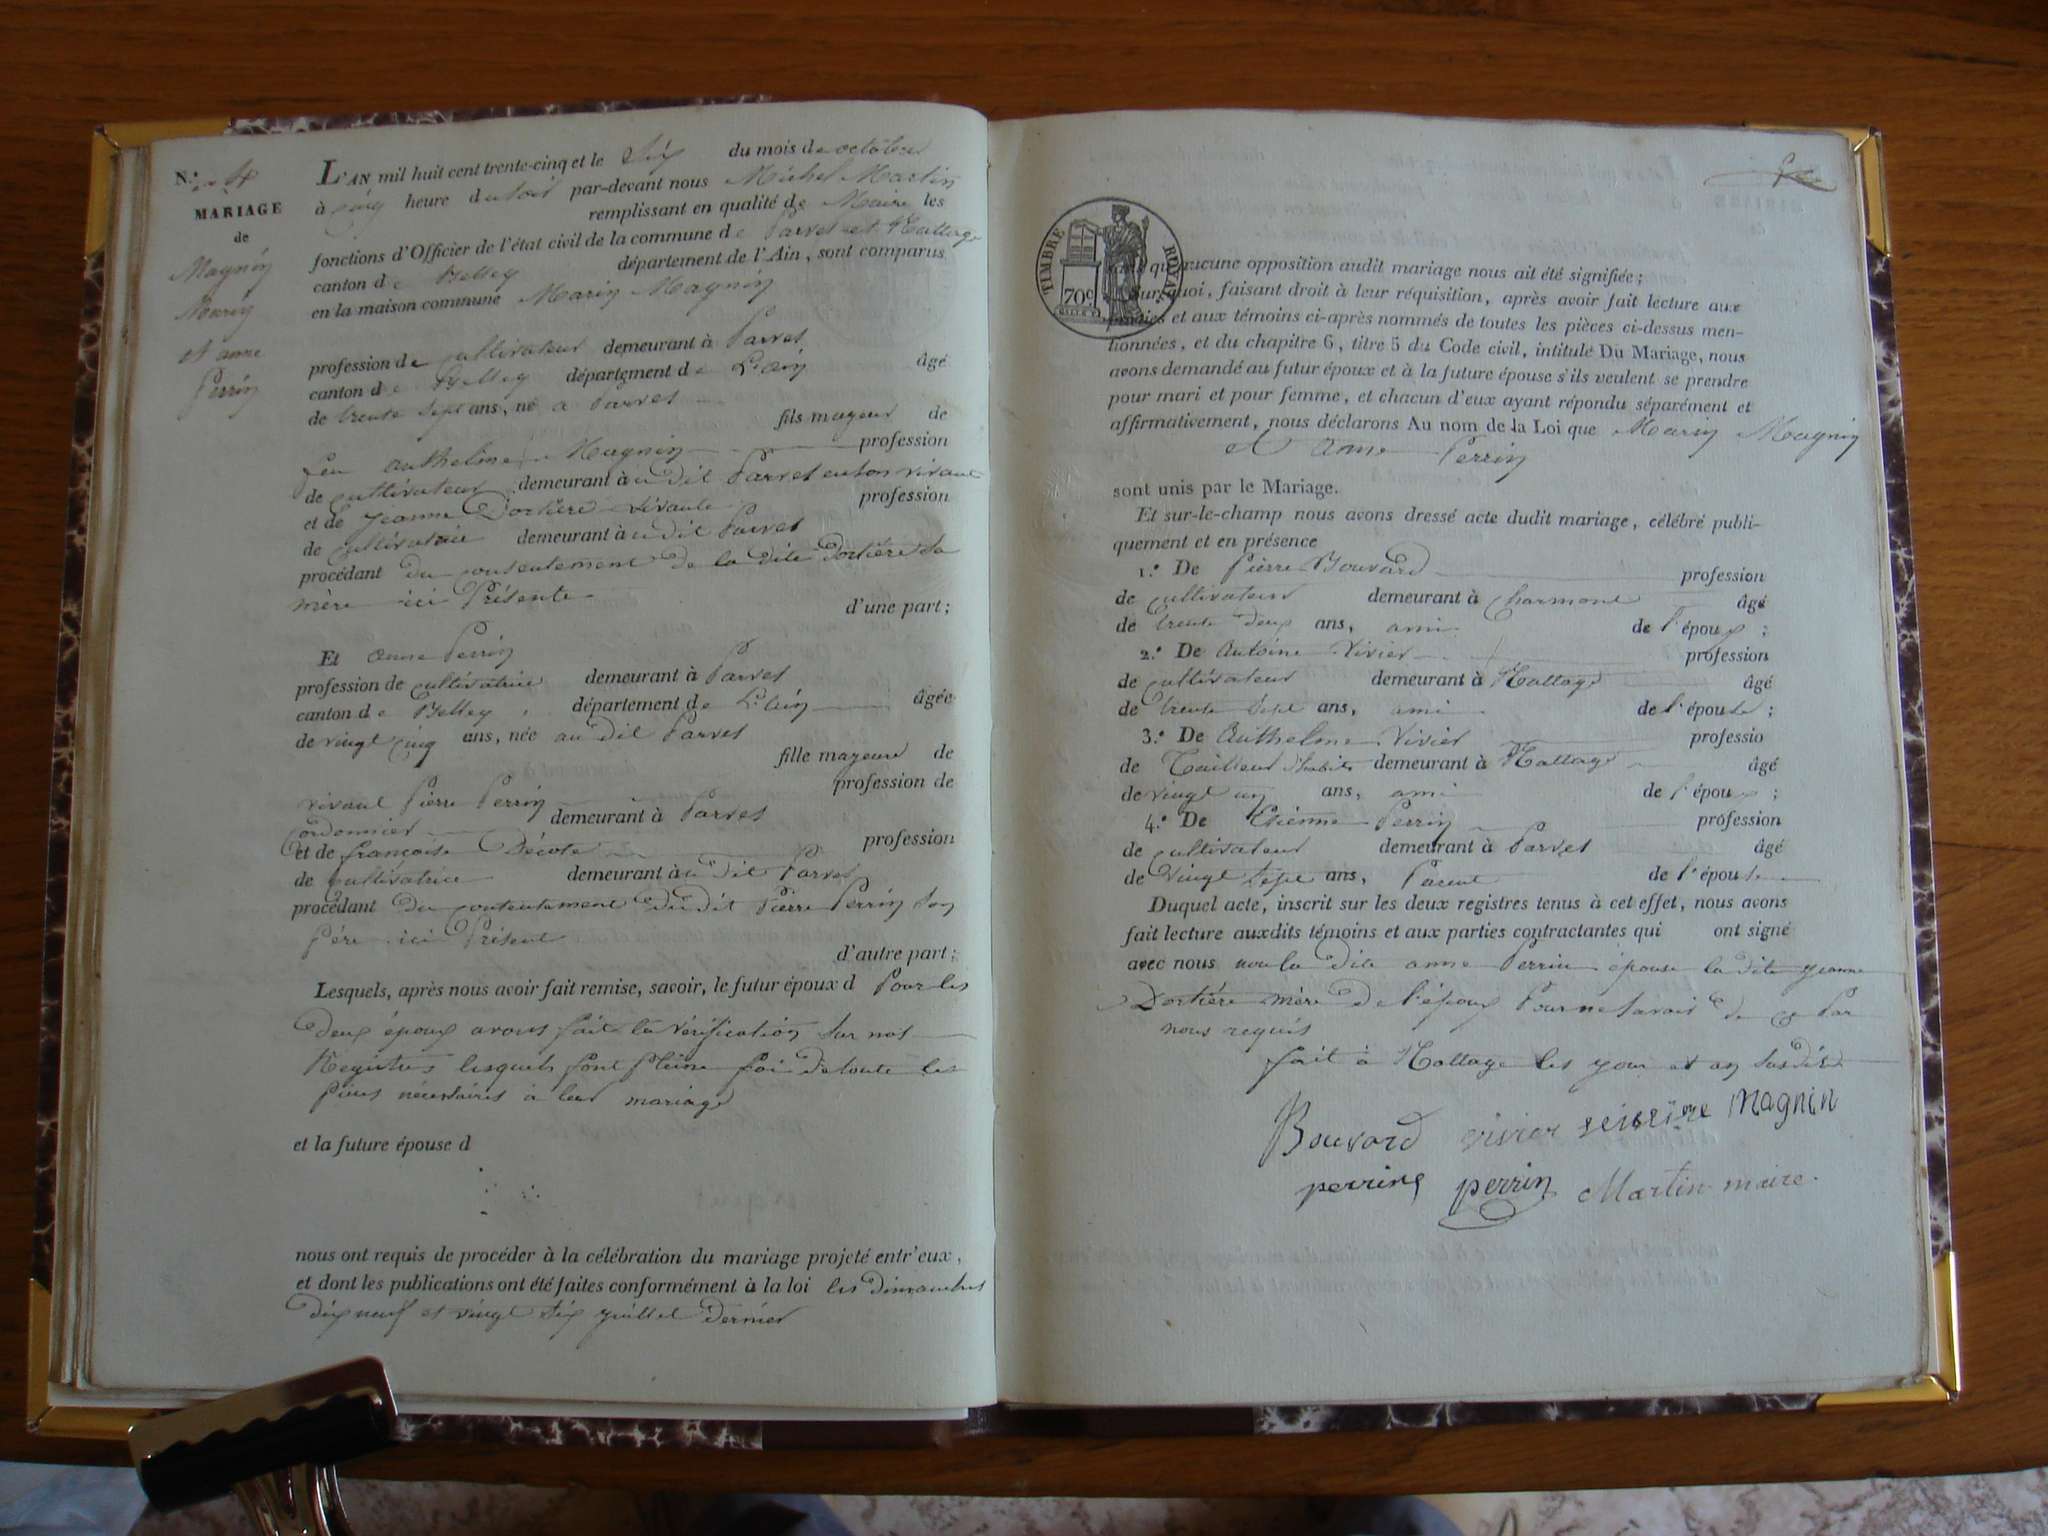 N.º 4
MARIAGE
de
Magnin
Marin
et anne
Perrin
L'AN mil huit cent trente-cinq et le Six du mois de octobre
à cinq heure du soir par-devant nous Michel Martin
remplissant en qualité de Maire les
fonctions d'Officier de l'état civil de la commune de Parves et Nattage
canton de Belley département de l'Ain, sont comparus
en la maison commune Marin Magnin
profession de cultivateur demeurant à Parves
canton de Belley département de L'ain âgé
de trente sept ans, né a Parves
fils mayeur de
feu anthelme Magnin profession
de cultivateur demeurant à u dit Parves en son vivant
et de jeanne Dortière vivante profession
de cultivatrice demeurant à u dit Parves
procédant du consentement de la dite Dortière sa
mère ici Présente
d'une part;
Et anne Perrin
profession de cultivatrice demeurant à Parves
canton de Belley département de L'ain âgée
de vingt cinq ans, née au dit Parves
fille mayeure de
vivant Pierre Perrin profession de
cordonnier demeurant à Parves
et de françoise Décote profession
de cultivatrice demeurant à u dit Parves
procédant du contentement du dit Pierre Perrin son
Père ici Présent
d'autre part;
Lesquels, après nous avoir fait remise, savoir, le futur époux d Pour les
deux époux avons fait la vérification sur nos
Registres lesquels font pleine foi de toute les
pièces nécessaires à leur mariage
et la future épouse d
nous ont requis de procéder à la célébration du mariage projeté entr'eux,
et dont les publications ont été faites conformément à la loi les dimanches
dix neuf et vingt six juillet dernier
TIMBRE ROYAL
70c
qu'aucune opposition audit mariage nous ait été signifiée;
quoi, faisant droit à leur réquisition, après avoir fait lecture aux
parties et aux témoins ci-après nommés de toutes les pièces ci-dessus men-
tionnées, et du chapitre 6, titre 5 du Code civil, intitulé Du Mariage, nous
avons demandé au futur époux et à la future épouse s'ils veulent se prendre
pour mari et pour femme, et chacun d'eux ayant répondu séparément et
affirmativement, nous déclarons Au nom de la Loi que Marin Magnin
et anne Perrin
sont unis par le Mariage.
Et sur-le-champ nous avons dressé acte dudit mariage, célébré publi-
quement et en présence
1.º De Pierre Bouvard profession
de cultivateur demeurant à Charmone âgé
de trente deux ans, ami de l'époux;
2.º De Antoine Vivier profession
de cultivateur demeurant à Nattage âgé
de trente sept ans, ami de l'épouse;
3.º De Anthelme Vivier professio
de Tailleur d'habits demeurant à Nattage âgé
de vingt un ans, ami de l'époux;
4.º De Etienne Perrin profession
de cultivateur demeurant à Parves âgé
de Vingt sept ans, Parent de l'épouse
Duquel acte, inscrit sur les deux registres tenus à cet effet, nous avons
fait lecture auxdits témoins et aux parties contractantes qui ont signé
avec nous non la dite anne Perrin épouse la dite jeanne
Dortière mère de l'époux Pour ne savoir de ce Par
nous requis
fait à Nattage les jour et an susdits
Bouvard vivier Magnin
perrin perrin Martin maire.